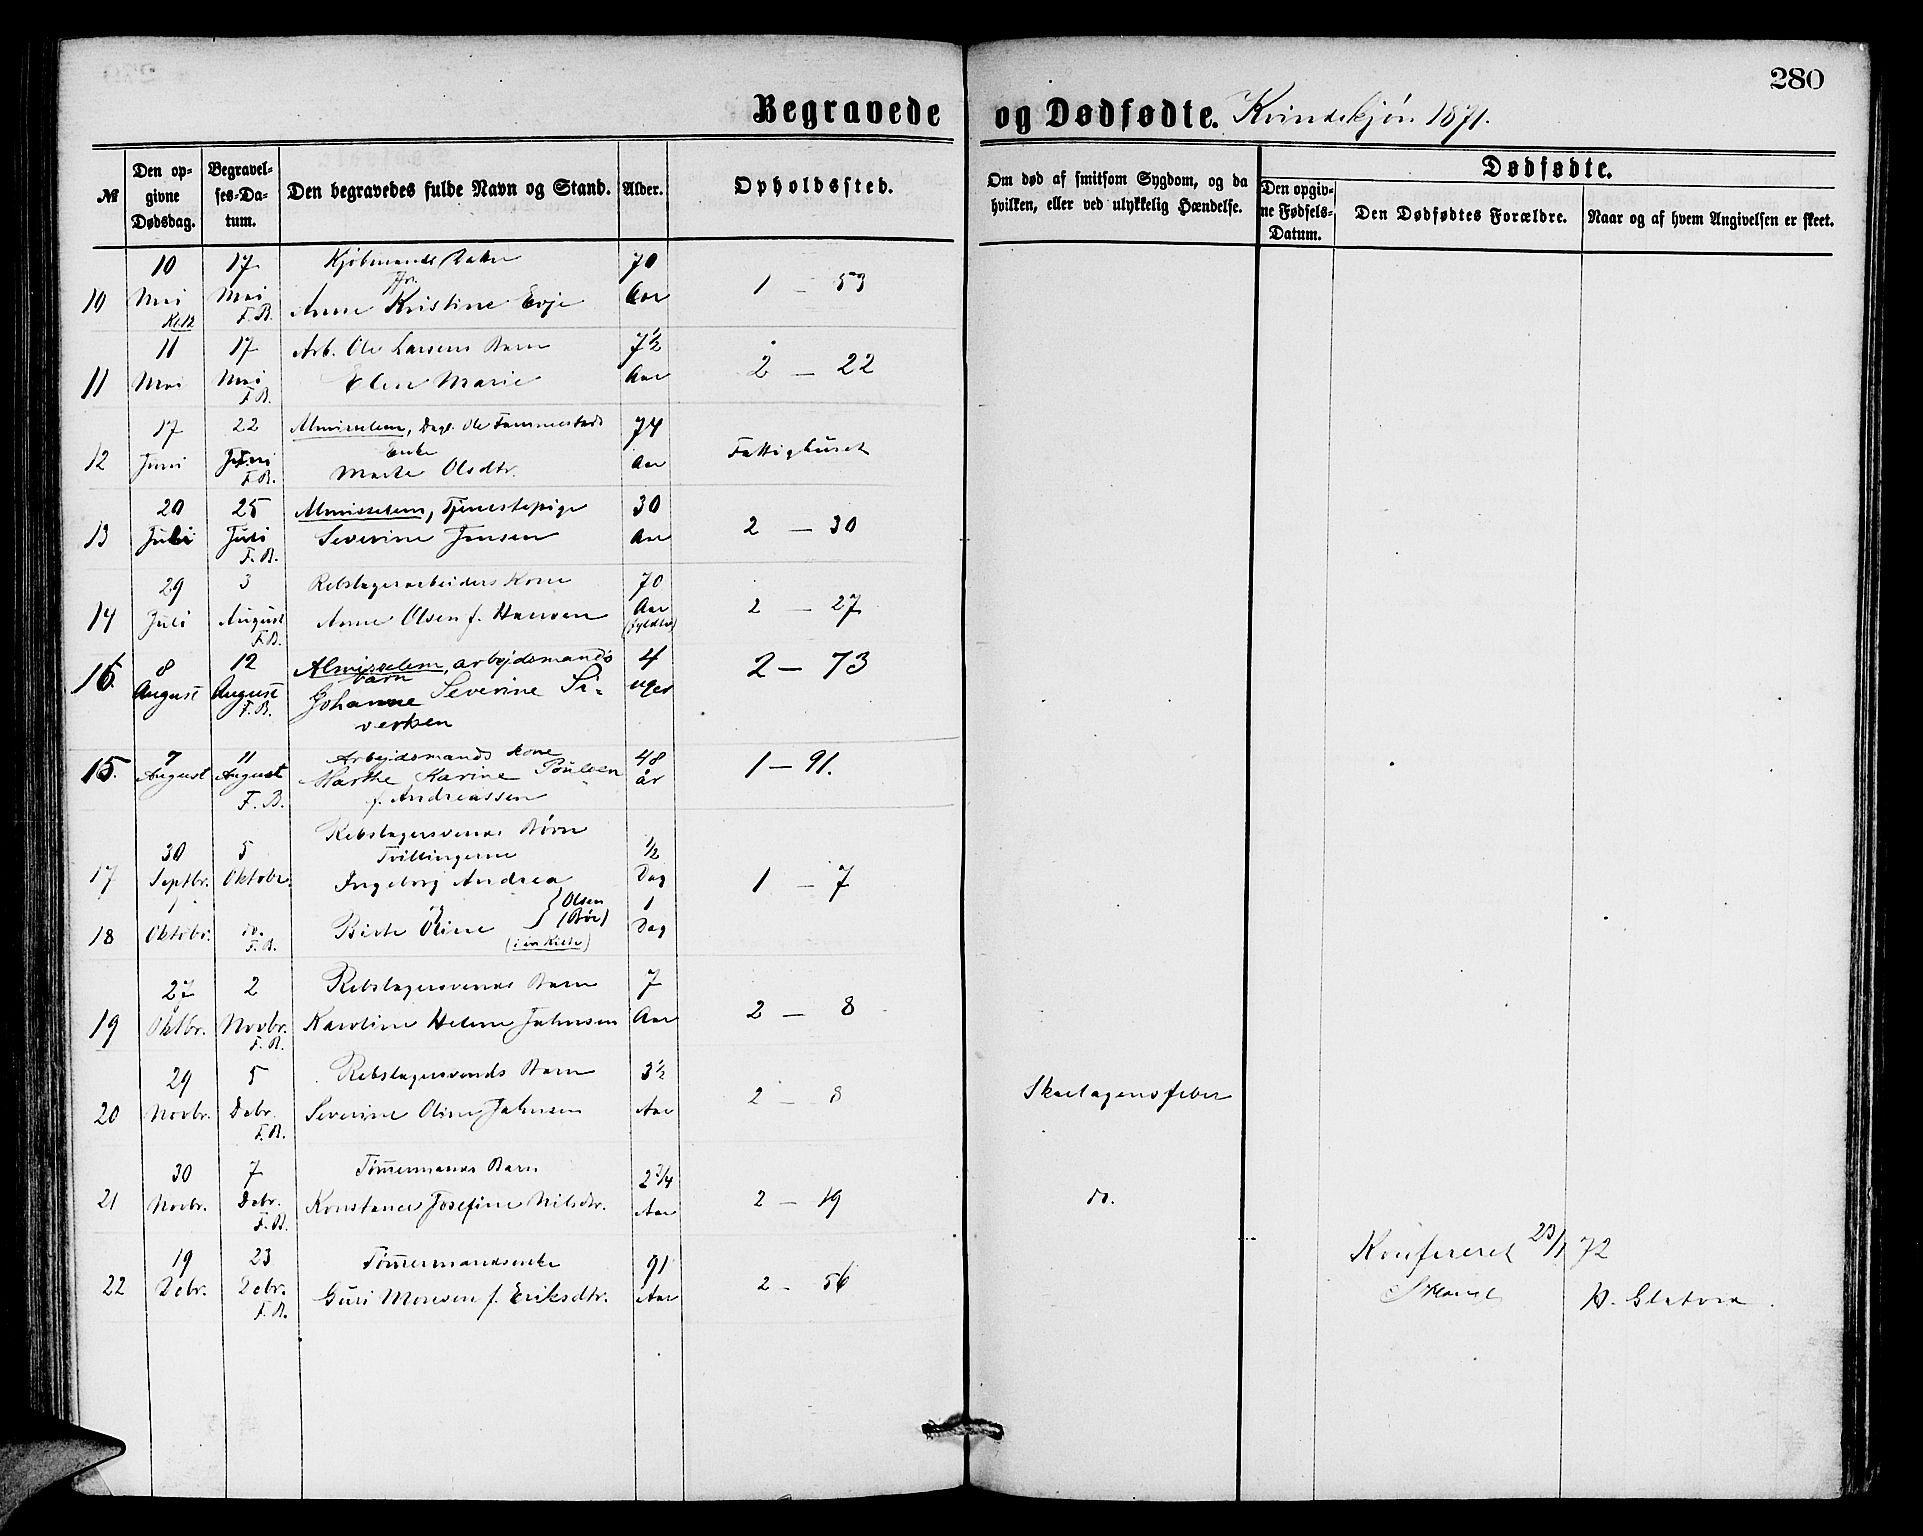 280
Begravede og Dødfødte. Kvindekjøn 1871.
№
Den opgivne Dødsdag.
Begravelses-Datum.
Den begravedes fulde Navn og Stand.
Alder.
Opholdssted.
Om død af smitsom Sygdom, og da hvilken, eller ved ulykkelig Hændelse.
Dødfødte.
Den opgivne Fødsels-Datum.
Den Dødfødtes Forældre.
Naar og af hvem Angivelsen er skeet.
10 17 Kjøbmands 70
10 Mai Mai Anne Kristine Evje Aar 1 – 53
F.B.
11 17 Arb. Ole Larsens Barn 7½
11 Mai Mai Elen Marie Aar 2 – 22
F.B.
17 22 Almisselem, Dagl. Ole Tammestads 74
Enke
12 Juni Juni Marte Olsdtr. Aar Fattighuset
F.B.
20 25 Almisselem, Tjenestepige 30
13 Juli Juli Severine Jensen Aar 2 – 30
F.B.
29 3 Rebslagerarbeiders Kone 70
14 Juli August Anne Olsen f. Hansen Aar (fyldte) 2 – 27
F.B.
8 12 Almisselem, arbejdsmands 4
16. August August barn uger 2 – 73
F.B. Johanne Severine Si-
versen
7 11 Arbejdsmands kone 48
15. August August Marthe Karine Poulsen år 1 – 91.
F.B. f. Andreassen
Rebslagersvends Børn
30 5 Tvillingerne ½
17 Septbr. Oktobr. Ingeborg Andrea Dag 1 – 7
1 og } Olsen (Bøe) 1
18 Oktobr. do. Birte Oline Dag
F.B. (i en Kiste)
27 2 Rebslagersvends Barn 7
19 Oktbr. Novbr. Karoline Helene Jahnsen Aar 2 – 8
F.B.
29 5 Rebslagersvends Barn 3½
20 Novbr. Debr. Severine Oline Jahnsen Aar 2 – 8 Skarlagensfeber
F.B.
30 7 Tømmermands Barn 2¾
21 Novbr. Debr. Konstance Josefine Nilsdtr. Aar 2 – 19 do.
F.B.
19 23 Tømmermandsenke 91
22 Debr. Debr. Guri Monsen f. Eriksdtr. Aar 2 – 56
F.B.
Konfereret 23/1 72